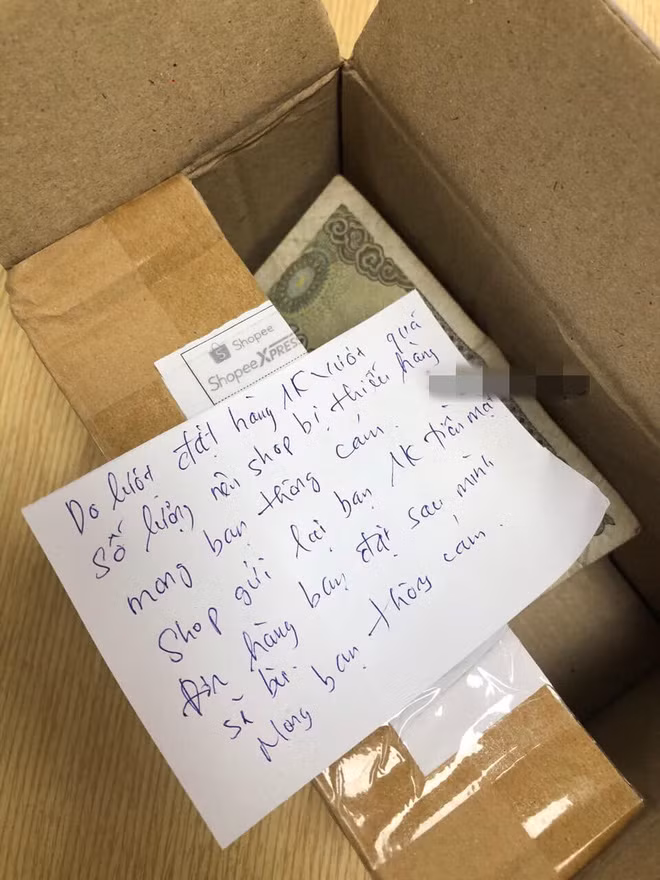 Shopee
Shopee XPRESS
Do lượt đặt hàng 1K vượt quá
số lượng nên shop bị thiếu hàng
mong bạn thông cảm.
Shop gửi lại bạn 1K tiền mặt
Đơn hàng bạn đặt sau mình
sẽ bù.
Mong bạn thông cảm.